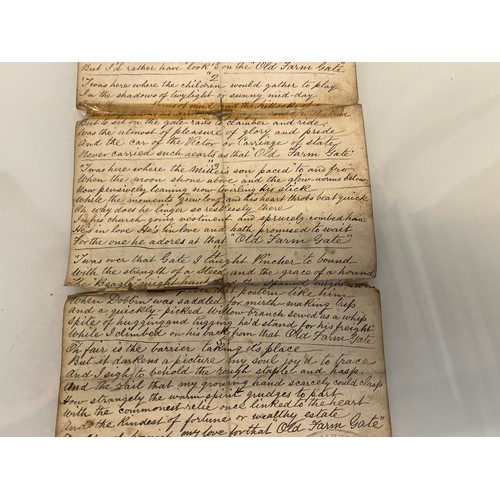 But I'd rather have look'd on the "Old Farm Gate"
"2
'Twas here where the children would gather to play
In the shadows of twylight or sunny mid-day
But to set on the gate rails to clamber and ride
Was the utmost of pleasure of glory and pride
And the car of the Victor or Carriage of state
Never carried such hearts as that "Old Farm Gate"
'Twas here where the Miller's son paced to and fro
When the moon shone above and the glow worms below
Now pensively leaning now twirling his stick
While the moments grew long and his heart throbs beat quick
Oh why does he linger so restlessly there
In his church going vestment and sprucely combed hair
He's in love He's in love and hath promised to wait
For the one he adores at that "Old Farm Gate"
'Twas over that Gate I taught Pincher to bound
With the strength of a Steed and the grace of a hound
The Beagle might hunt the Spaniel might
postern like him
When Dobbin was saddled for mirth making trips
And a quickly picked Willow branch served us a whip
Spite of hugging and tugging he'd stand for his freight
While I climbed on his back from that "Old Farm Gate
Oh fair is the barrier taking its place
But it darkens a picture my soul joy'd to trace
And I sigh to behold the rough staple and hasp
And the rail that my growing hand scarcely could clasp
How strangely the warm spirit grudges to part
With the commonest relic once linked to the heart
And the kindest of fortune or wealthy estate
my love for that "Old Farm Gate"